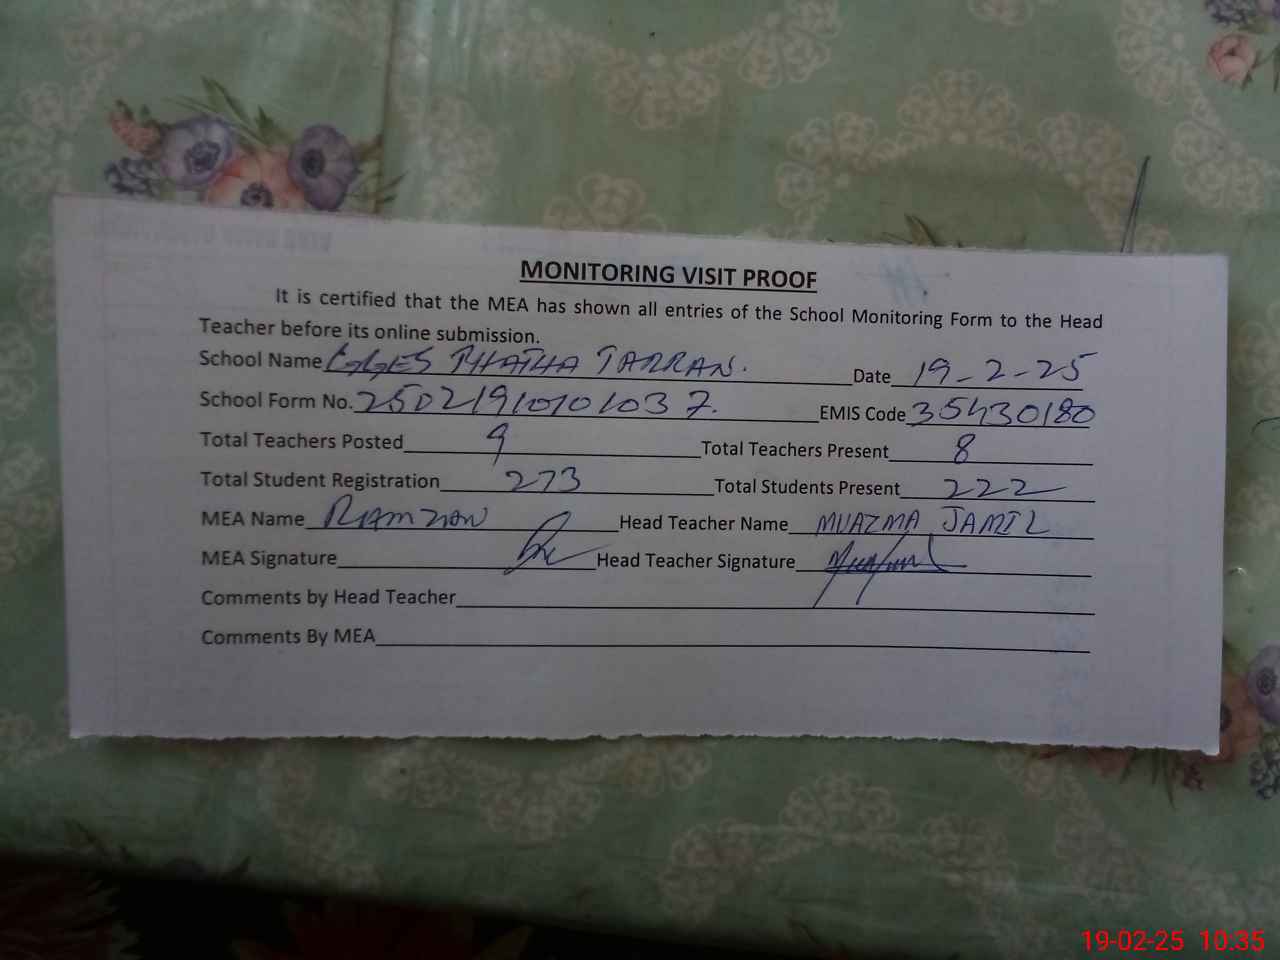 MONITORING VISIT PROOF
It is certified that the MEA has shown all entries of the School Monitoring Form to the Head
Teacher before its online submission.
School Name GGES BHATHA TARRAN. Date 19-2-25
School Form No. 2502191010101037. EMIS Code 35430180
Total Teachers Posted 9 Total Teachers Present 8
Total Student Registration 273 Total Students Present 222
MEA Name RAMZAN Head Teacher Name MUAZMA JAMIL
MEA Signature Head Teacher Signature
Comments by Head Teacher
Comments By MEA
19-02-25 10:35